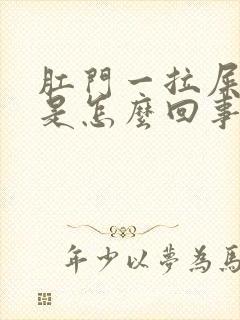 肛門一拉屎
是怎麼回事
年少以夢為馬